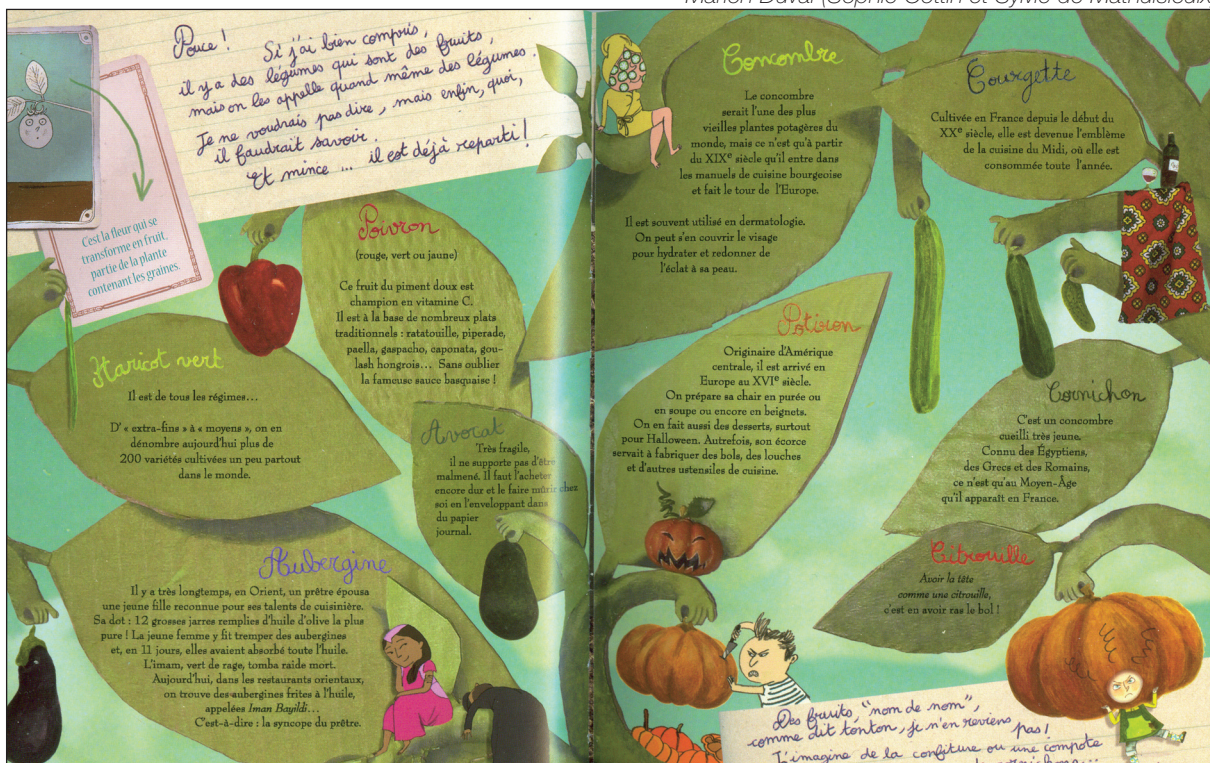 Marion Duval (Sophie Cottin et Sylvie de Mathuisieulx
Pouce !
Si j'ai bien compris,
il y a des légumes qui sont des fruits,
mais on les appelle quand même des légumes.
Je ne voudrais pas dire, mais enfin, quoi,
il faudrait savoir.
Et mince ... il est déjà reparti !
C'est la fleur qui se
transforme en fruit,
partie de la plante
contenant les graines.
Poivron
(rouge, vert ou jaune)
Ce fruit du piment doux est
champion en vitamine C.
Il est à la base de nombreux plats
traditionnels : ratatouille, piperade,
paella, gaspacho, caponata, gou-
lash hongrois... Sans oublier
la fameuse sauce basquaise !
Haricot vert
Il est de tous les régimes...
D' « extra-fins » à « moyens », on en
dénombre aujourd'hui plus de
200 variétés cultivées un peu partout
dans le monde.
Avocat
Très fragile,
il ne supporte pas d'être
malmené. Il faut l'acheter
encore dur et le faire mûrir chez
soi en l'enveloppant dans
du papier
journal.
Aubergine
Il y a très longtemps, en Orient, un prêtre épousa
une jeune fille reconnue pour ses talents de cuisinière.
Sa dot : 12 grosses jarres remplies d'huile d'olive la plus
pure ! La jeune femme y fit tremper des aubergines
et, en 11 jours, elles avaient absorbé toute l'huile.
L'imam, vert de rage, tomba raide mort.
Aujourd'hui, dans les restaurants orientaux,
on trouve des aubergines frites à l'huile,
appelées Iman Bayildi...
C'est-à-dire : la syncope du prêtre.
Concombre
Le concombre
serait l'une des plus
vieilles plantes potagères du
monde, mais ce n'est qu'à partir
du XIXe siècle qu'il entre dans
les manuels de cuisine bourgeoise
et fait le tour de l'Europe.
Il est souvent utilisé en dermatologie.
On peut s'en couvrir le visage
pour hydrater et redonner de
l'éclat à sa peau.
Courgette
Cultivée en France depuis le début du
XXe siècle, elle est devenue l'emblème
de la cuisine du Midi, où elle est
consommée toute l'année.
Potiron
Originaire d'Amérique
centrale, il est arrivé en
Europe au XVIe siècle.
On prépare sa chair en purée ou
en soupe ou encore en beignets.
On en fait aussi des desserts, surtout
pour Halloween. Autrefois, son écorce
servait à fabriquer des bols, des louches
et d'autres ustensiles de cuisine.
Cornichon
C'est un concombre
cueilli très jeune.
Connu des Égyptiens,
des Grecs et des Romains,
ce n'est qu'au Moyen-Âge
qu'il apparaît en France.
Citrouille
Avoir la tête
comme une citrouille,
c'est en avoir ras le bol !
Des fruits, "nom de nom",
comme dit tonton, je n'en reviens pas !
J'imagine de la confiture ou une compote